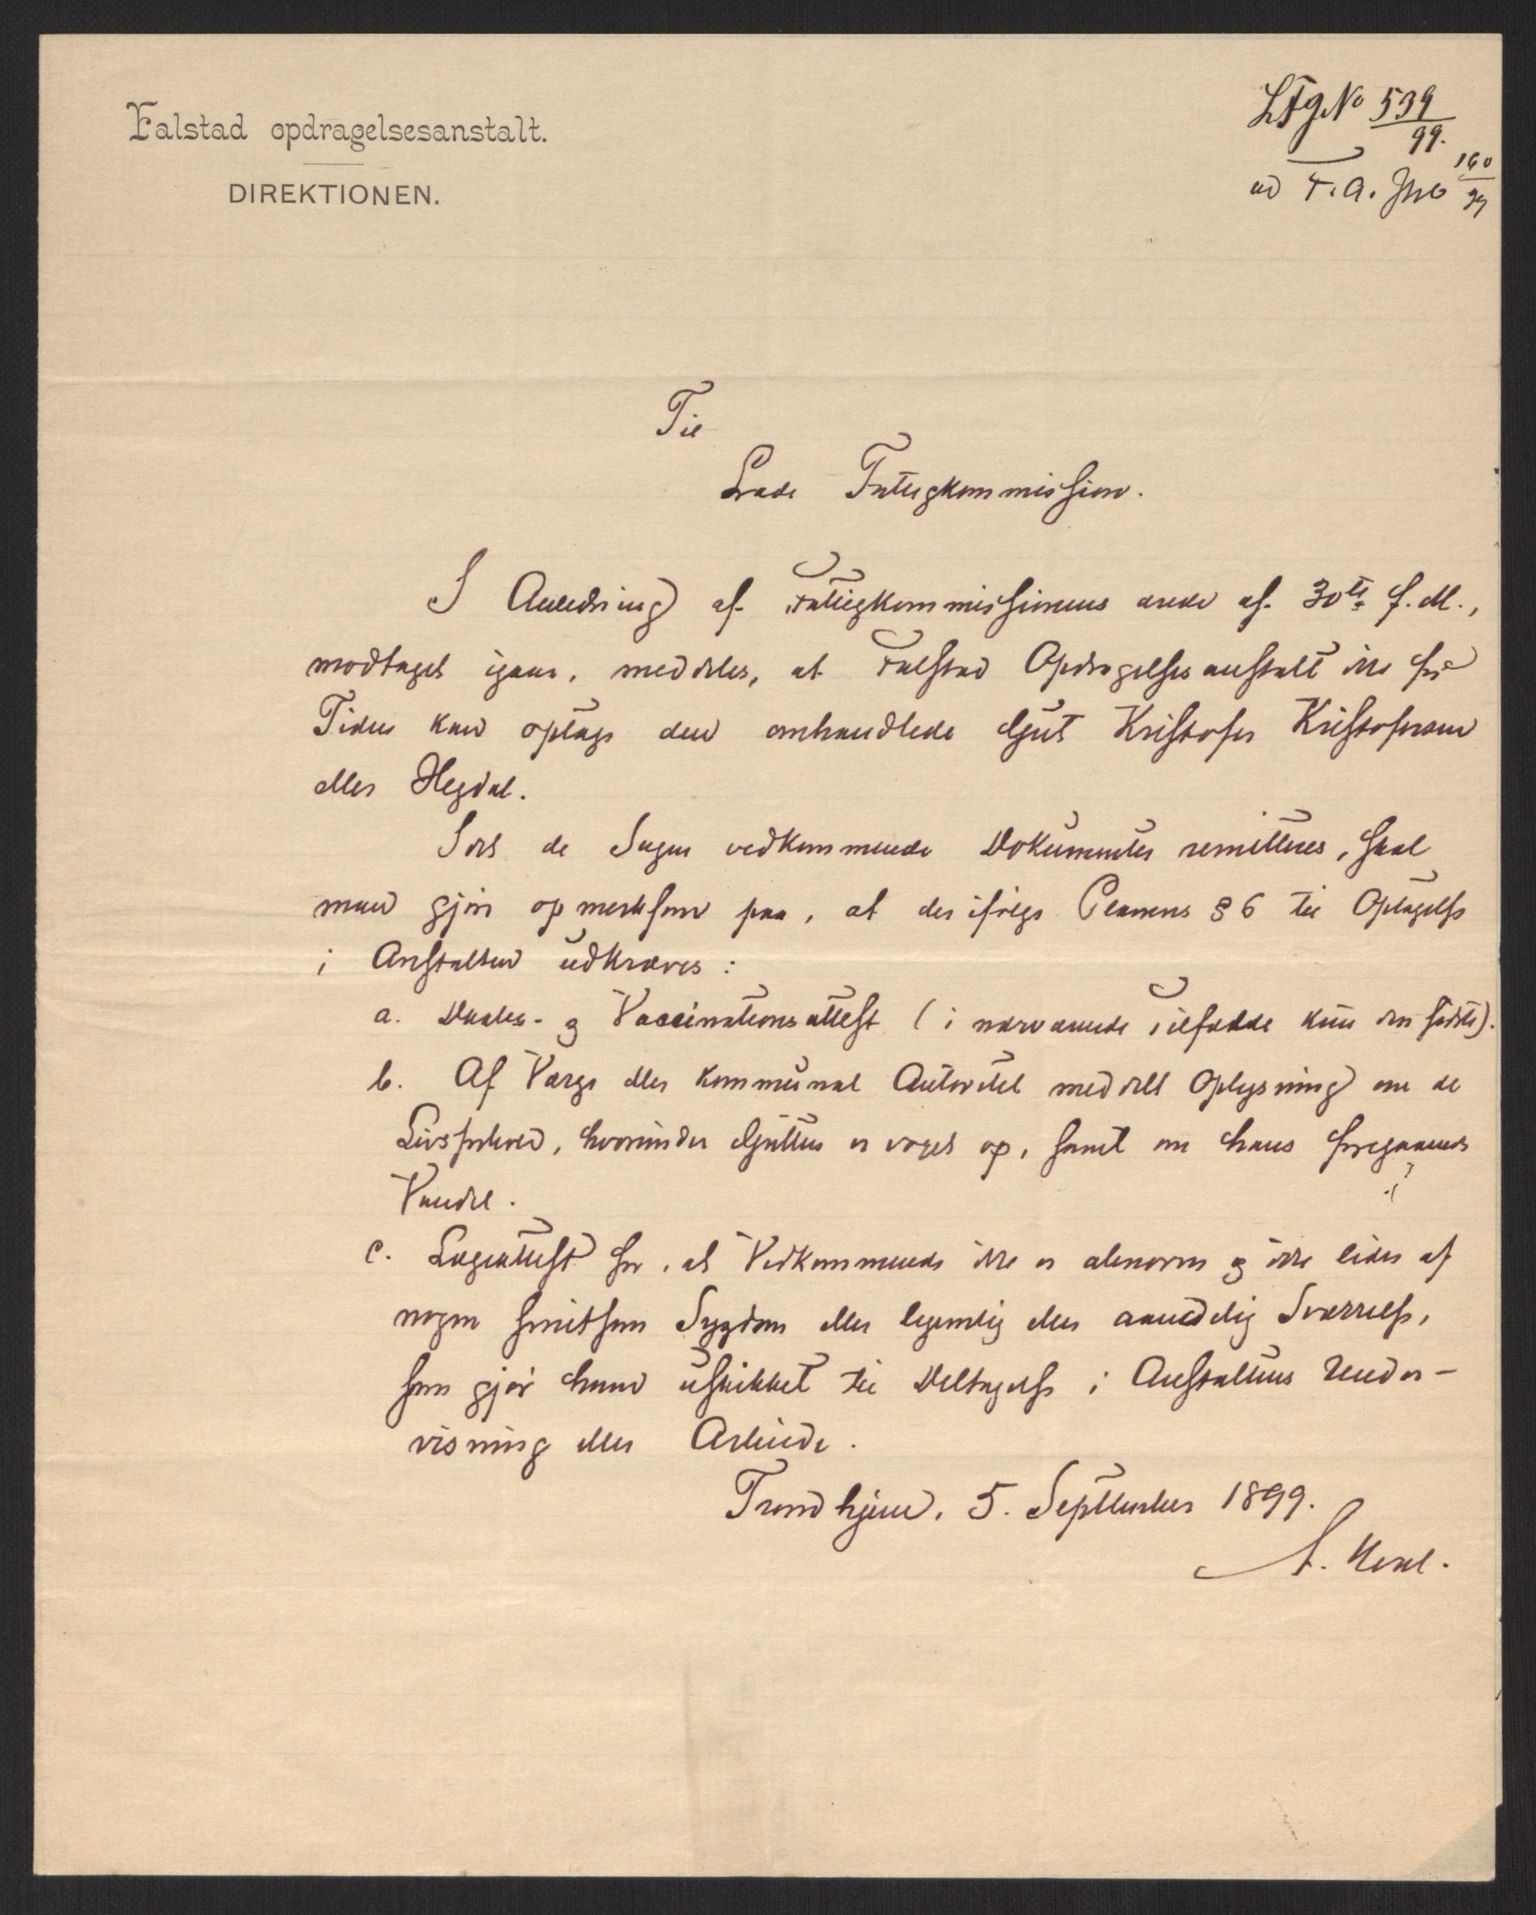 Falstad opdragelsesanstalt.
DIREKTIONEN.
LFgNo 539/99.
ad F. A. Jno 160/99
Til
Lade Fattigkommission.
I Anledning af Fattigkommissionens ærede af 30te f. M.,
modtaget igaar, meddeles, at Falstad Opdragelsesanstalt ikke for
Tiden kan optage den omhandlede Gut Kristofer Kristofersen
eller Hegdal.
Idet de Sagen vedkommende Dokumenter remitteres, skal
man gjøre opmerksom paa, at der ifølge Planens § 6 til Optagelse
i Anstalten udkræves:
a. Daabs- og Vaccinationsattest (i nærværende Tilfælde kun den første).
b. Af Værge eller kommunal Autoritet meddelt Oplysning om de
Livsforhold, hvorunder Gutten er voxet op, samt om hans foregaaende
Vandel.
c. Lægeattest for, at Vedkommende ikke er abnorm og ikke lider af
nogen smitsom Sygdom eller legemlig eller aandelig Svækkelse,
som gjør ham uskikket til Deltagelse i Anstaltens Under-
visning eller Arbeide.
Trondhjem, 5. September 1899.